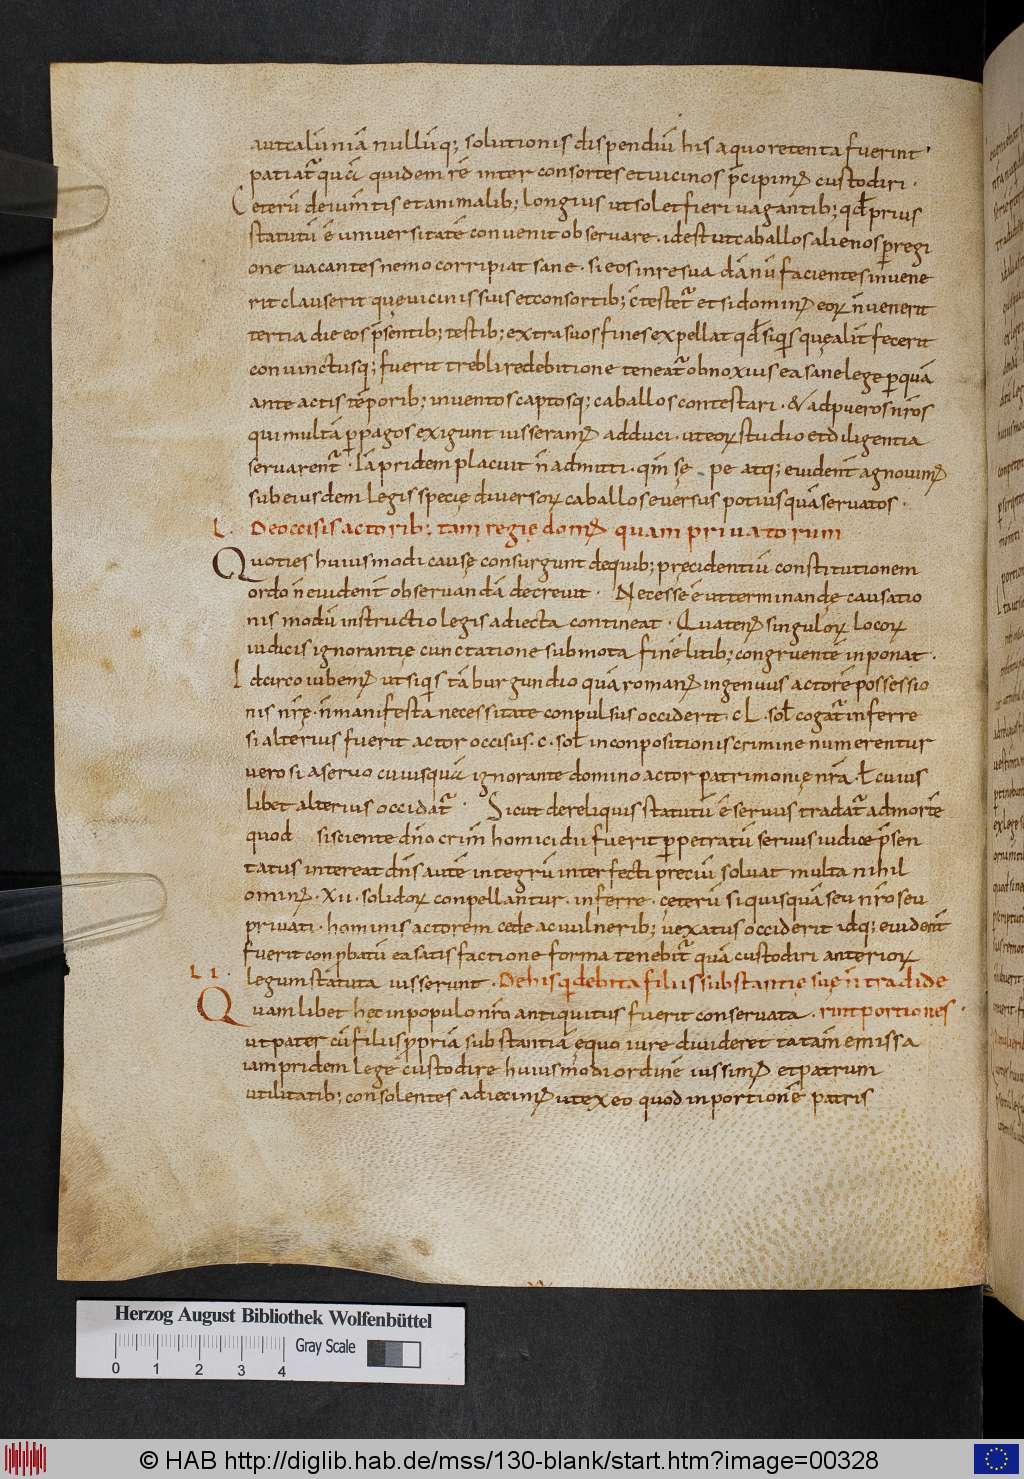 aut calūniā nullūq; solutionis dispendiū his a quo retenta fuerint
patiat̄ qūā quidem rē inter consortes et uicinos p̄cipim᷒ custodiri.
Ceterū de iumtis et animalib; longius ut solet fieri uagantib; qđ prius
statutū ē uniuersitatē conuenit obseruare. id est ut caballos alienos ꝑ regi
one uacantes nemo corripiat sane. si eos in re sua dānū facientes inuene
rit clauserit que uicinis suis et consortib; c̄testet̄ et si domin᷒ eoꝝ n̄ uenerit
tertia die eos p̄sentib; testib; extra suos fines expellat qđ si q̄s quęalit̄ fecerit
conuinctusq; fuerit trebli redebitione teneat̄ obnoxius ea sane lege ꝑ quā
ante actis tēporib; inuentos captosq; caballos contestari. & ad pueros nr̄os
qui multā ꝑ pagos exigunt iusseram᷒ adduci. ut eoꝝ studio et diligentia
seruarent̄. Iā pridem placuit n̄ admitti. qm̄ sę pe atq; euident̄ agnouim᷒
sub eiusdem legis specię diuersoꝝ caballos euersus potius quā seruatos.
L. De occisis actorib; tam regię dom᷒ quam priuatorum
Quoties huiusmodi causę consurgunt de quib; pręcidentiū constitutionem
ordo n̄ euident̄ obseruandā decreuit. Necesse ē ut terminandę causatio
nis modū instructio legis adiecta contineat. Quaten᷒ singuloꝝ locoꝝ
iudicis ignorantię cunctatione submota finē litib; congruentē inponat.
Idcirco iubem᷒ ut si q̄s tā burgundio quā roman᷒ ingenuus actorē possessio
nis nr̄ę. n̄ manifesta necessitate conpulsus occiderit. cL. sol̄ cogat̄ inferre
si alterius fuerit actor occisus. c. sol̄ in conpositionis crimine numerentur
uero si a seruo cuiusquā ignorante domino actor patrimonię nr̄a. ł cuius
libet alterius occidat̄. Sicut de reliquis statutū ē seruus tradat̄ ad mortē
quod si sciente dn̄o crim̄ homicidii fuerit ꝑpetratū seruus iudice p̄sen
tatus intereat dn̄s autē integrū interfecti preciū soluat multa nihil
omin᷒. xii. solidoꝝ conpellantur. inferre. ceterū si quisquā seu nr̄o seu
priuati. hominis actorem cede ac uulnerib; uexatus occiderit idq; euident̄
fuerit conp̱batū ea satisfactione forma tenebit̄ quā custodiri anterioꝝ
LI. legum statuta iusserunt. De his q̄ debita filiis substantię suę n̄ tradide
Quamlibet hęc in populo nr̄o antiquitus fuerit conseruata. rint portiones.
ut pater cū filiis ꝓpriā substantiā ęquo iure diuideret tatam̄ emissa
iam pridem lege custodire huiusmodi ordinē iussim᷒ et patrum
utilitatib; consolentes adiecim᷒ ut ex eo quod in portionē patris
Herzog August Bibliothek Wolfenbüttel
Gray Scale
0 1 2 3 4
© HAB http://diglib.hab.de/mss/130-blank/start.htm?image=00328